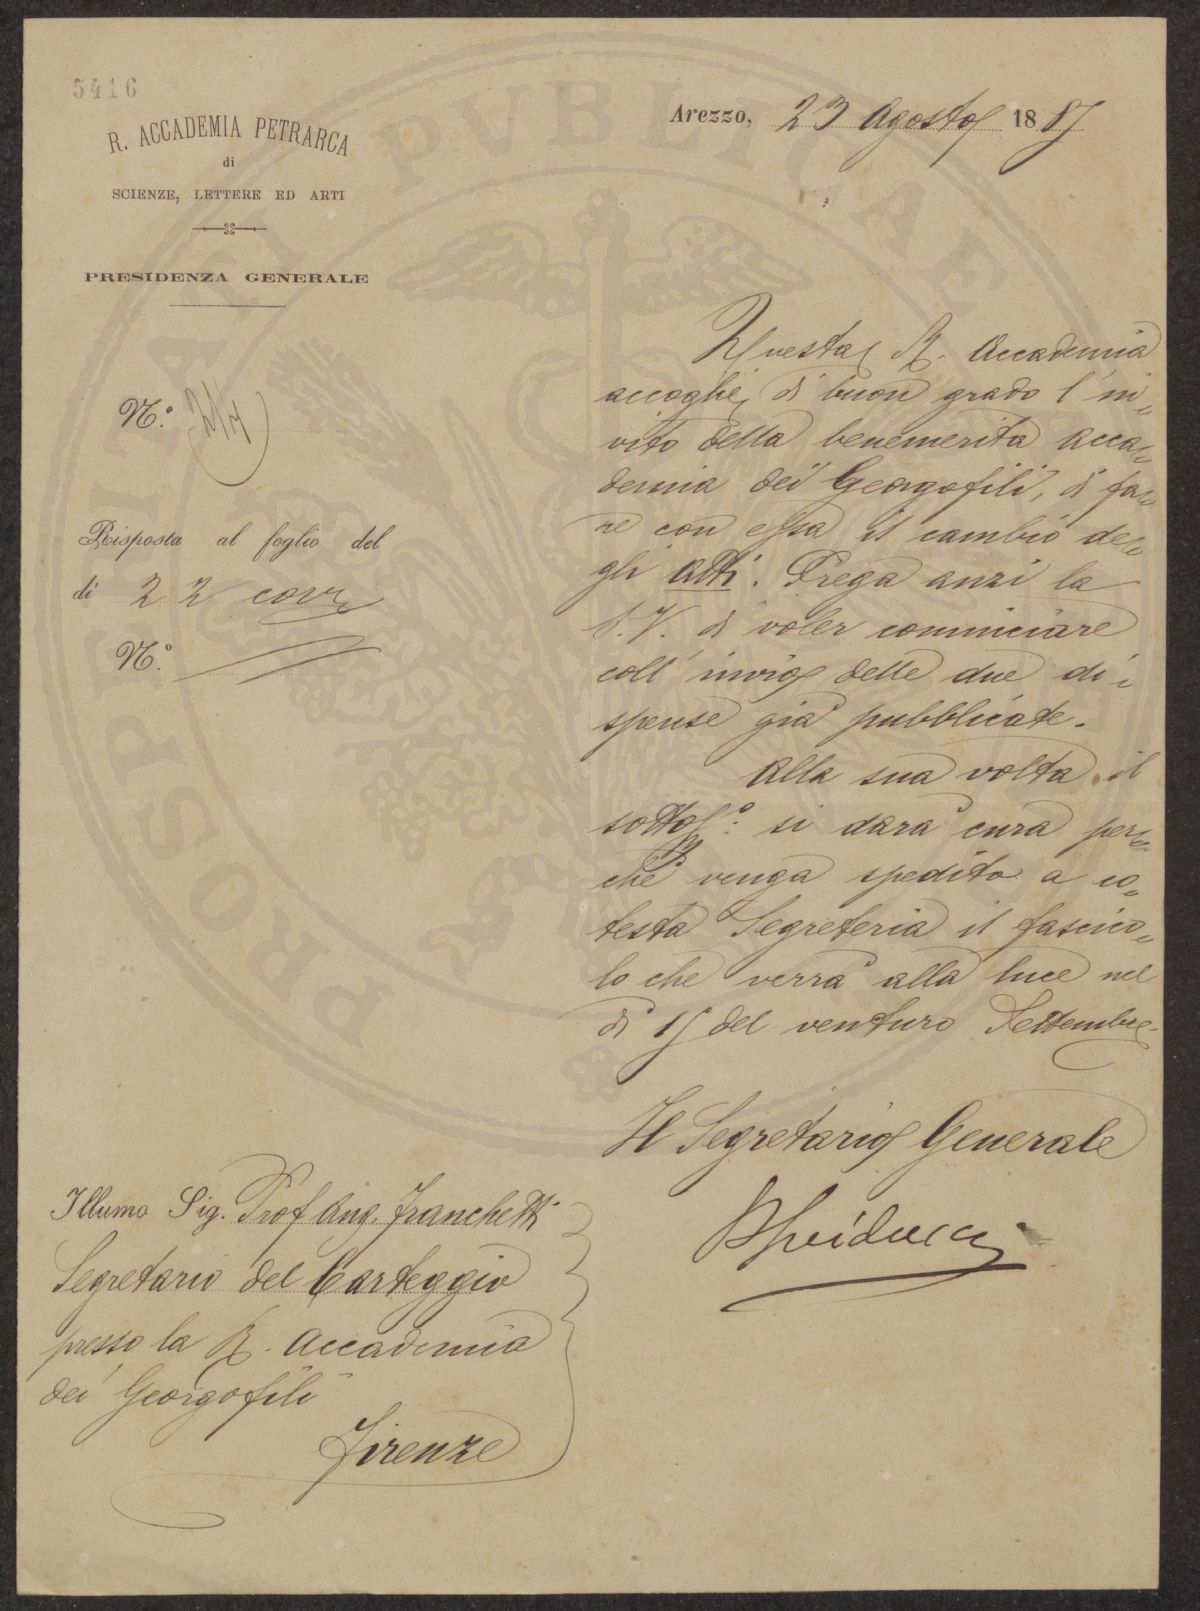 5416
R. ACCADEMIA PETRARCA
di
SCIENZE, LETTERE ED ARTI
PRESIDENZA GENERALE
Arezzo, 23 Agosto 1885
N.º
Risposta al foglio del
di 22 corr
N.º
Questa R. Accademia
accoglie di buon grado l'in-
vito della benemerita Acca-
demia dei Georgofili, di fa-
re con essa il cambio de-
gli Atti. Prega anzi la
S.V. di voler cominciare
coll'invio delle due di-
spense già pubblicate.
Alla sua volta il
sottoº: si darà cura per-
chè venga spedito a co-
testa Segreteria il fascico-
lo che verrà alla luce nel
dì 15 del venturo Settembre.
Il Segretario Generale
Illumo Sig. Prof Ang. Franchetti
Segretario del Carteggio
presso la R. Accademia
dei Georgofili
Firenze
PROSPERITATI PUBLICAE